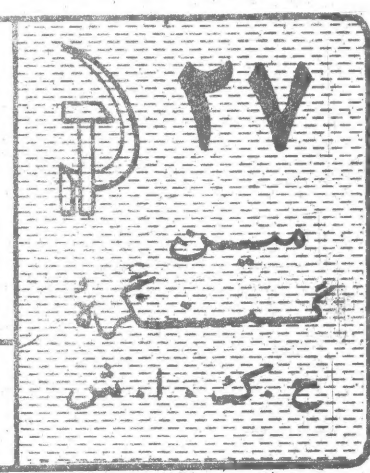 ۲۷
مین
کنگرهٔ
ح . ک . ا . ش